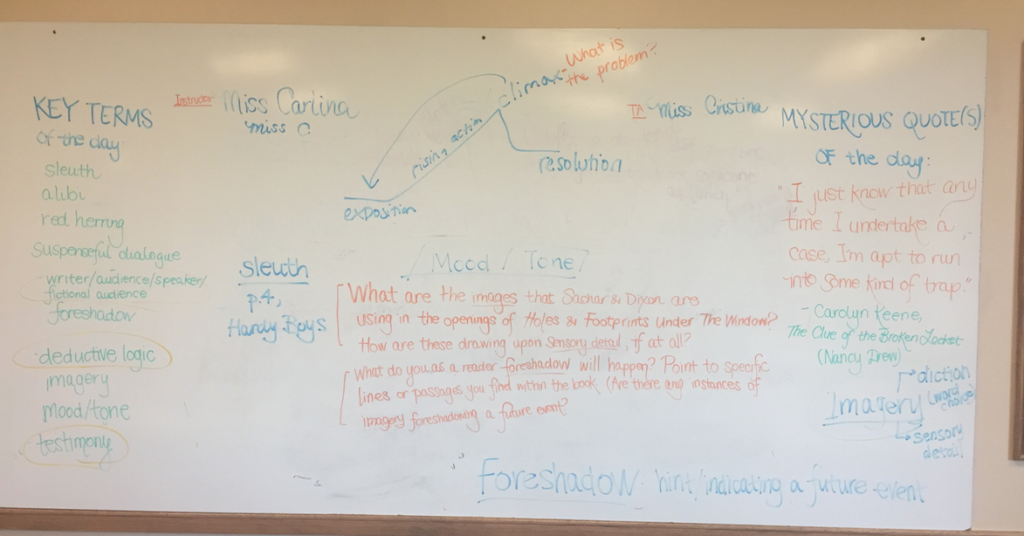 KEY TERMS
of the day:
sleuth
alibi
red herring
suspenseful dialogue
- writer/audience/speaker/
fictional audience
foreshadow
deductive logic
imagery
mood/tone
testimony
Instructor Miss Carlina
miss C
climax
What is
the problem?
rising action
resolution
exposition
TA Miss Cristina
sleuth
p.4,
Hardy Boys
Mood / Tone?
What are the images that Sachar & Dixon are
using in the openings of Holes & Footprints Under The Window?
How are these drawing upon sensory detail, if at all?
What do you as a reader foreshadow will happen? Point to specific
lines or passages you find within the book. (Are there any instances of
imagery foreshadowing a future event?
MYSTERIOUS QUOTE(S)
OF the day:
"I just know that any
time I undertake a
case, I'm apt to run
into some kind of trap."
- Carolyn Keene,
The Clue of the Broken Locket
(Nancy Drew)
Imagery
diction
(word
choice)
sensory
detail
Foreshadow: hint/indicating a future event